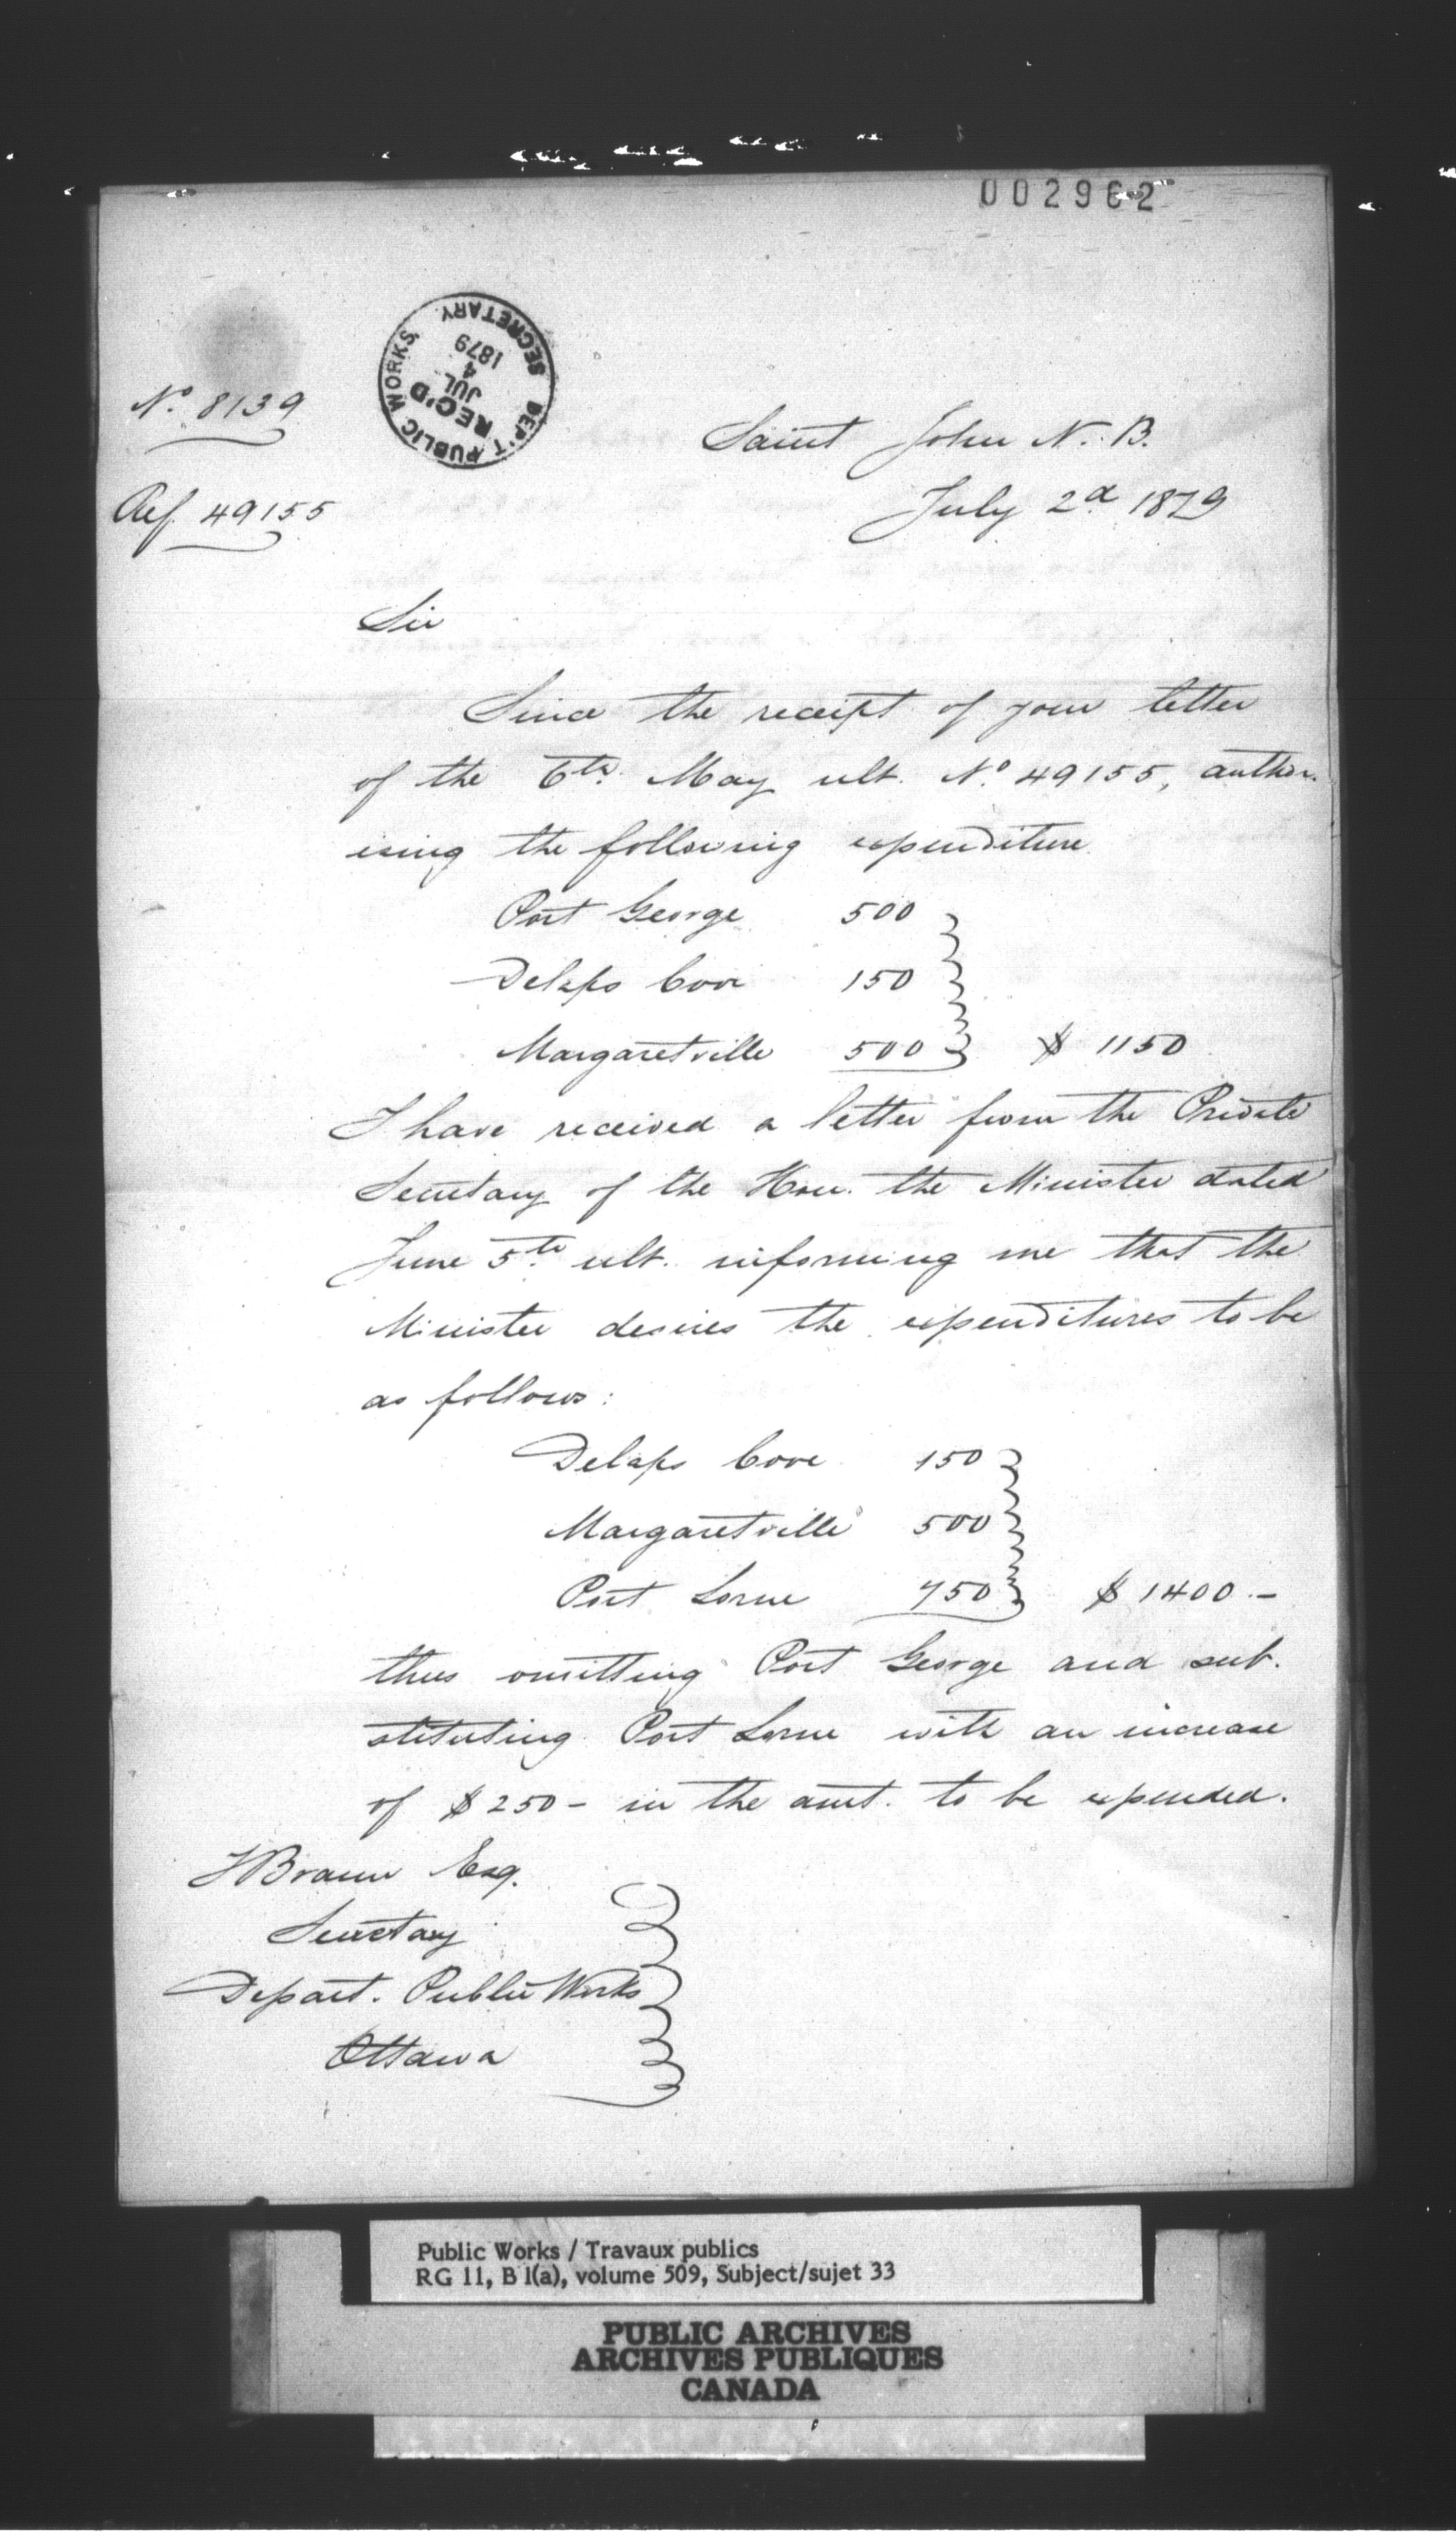 002962
DEP'T PUBLIC WORKS
REC'D
JUL
4
1879
SECRETARY
No. 8139
Ref. 49155
Saint John N.B.
July 2d 1879
Sir
Since the receipt of your letter
of the 6th May ult. No. 49155, author-
ising the following expenditure
Port George 500
Delaps Cove 150
Margaretville 500 $ 1150
I have received a letter from the Private
Secretary of the Hon. the Minister dated
June 5th ult. informing me that the
Minister desires the expenditures to be
as follows:
Delaps Cove 150
Margaretville 500
Port Lorne 750 $ 1400.-
thus omitting Port George and sub-
stituting Port Lorne with an increase
of $250- in the amt. to be expended.
F Braun Esq.
Secretary
Depart. Public Works
Ottawa
Public Works / Travaux publics
RG 11, B 1(a), volume 509, Subject/sujet 33
PUBLIC ARCHIVES
ARCHIVES PUBLIQUES
CANADA